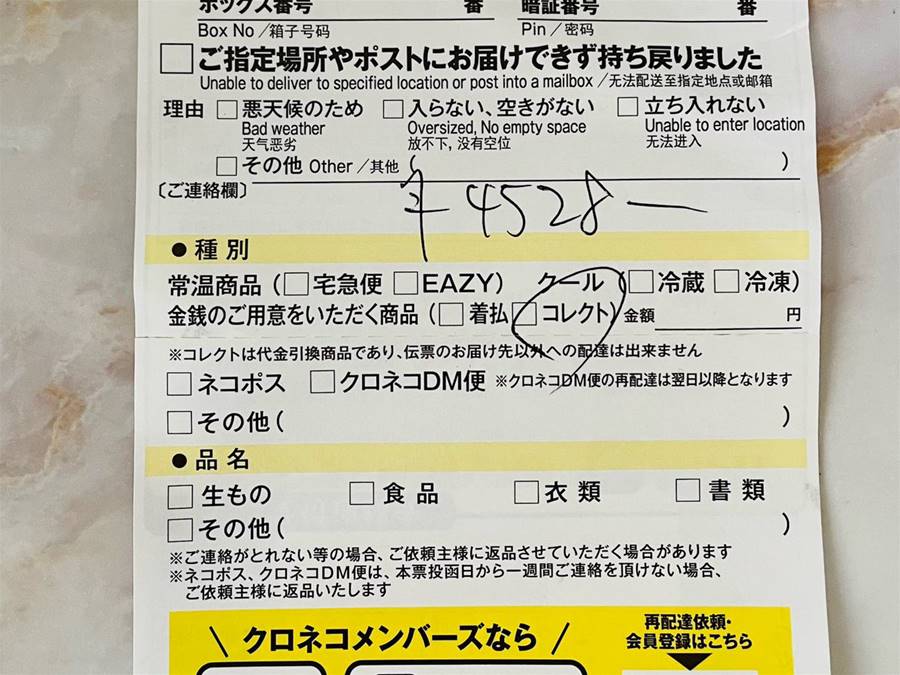 ボックス番号 番 暗証番号 番
Box No／箱子号码 Pin／密码
□ご指定場所やポストにお届けできず持ち戻りました
Unable to deliver to specified location or post into a mailbox／无法配送至指定地点或邮箱
理由 □悪天候のため □入らない、空きがない □立ち入れない
Bad weather Oversized, No empty space Unable to enter location
天气恶劣 放不下, 没有空位 无法进入
□その他 Other／其他 ( )
〔ご連絡欄〕
¥4528ー
●種別
常温商品（□宅急便 □EAZY） クール（□冷蔵 □冷凍）
金銭のご用意をいただく商品（□着払 □コレクト）金額 円
※コレクトは代金引換商品であり、伝票のお届け先以外への配達は出来ません
□ネコポス □クロネコDM便 ※クロネコDM便の再配達は翌日以降となります
□その他（ ）
●品名
□生もの □食品 □衣類 □書類
□その他（ ）
※ご連絡がとれない等の場合、ご依頼主様に返品させていただく場合があります
※ネコポス、クロネコDM便は、本票投函日から一週間ご連絡を頂けない場合、
ご依頼主様に返品いたします
＼クロネコメンバーズなら／
再配達依頼・
会員登録はこちら